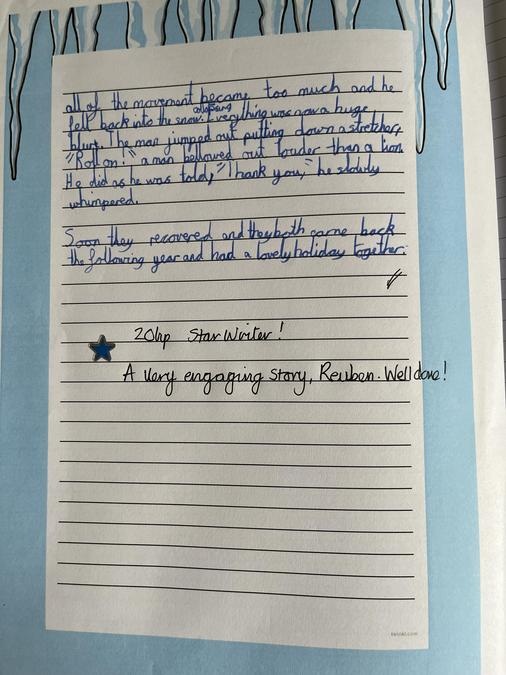 all of the movement became too much and he
fell back into the snow. collapsing Everything was now a huge
blur. The man jumped out putting down a stretcher,
"Roll on!" a man bellowed out louder than a lion.
He did as he was told, "Thank you," he slowly
whimpered.
Soon they recovered and they both came back
the following year and had a lovely holiday together.
20hp Star Writer!
A very engaging story, Reuben. Well done!
twinkl.com